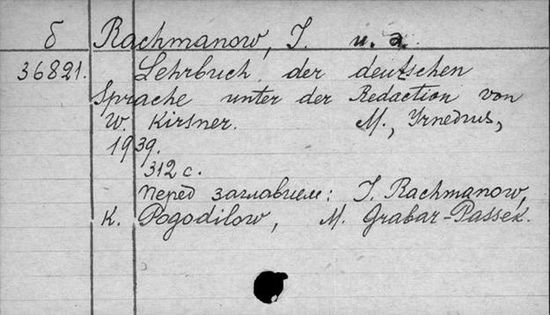 б Rachmanow, I. u. a.
36821. Lehrbuch der deutschen
Sprache unter der Redaction von
W. Kirsner. M.,
1939.
312 с.
Перед заглавием: I. Rachmanow,
K. Pogodilow, M. Grabar-Passek.